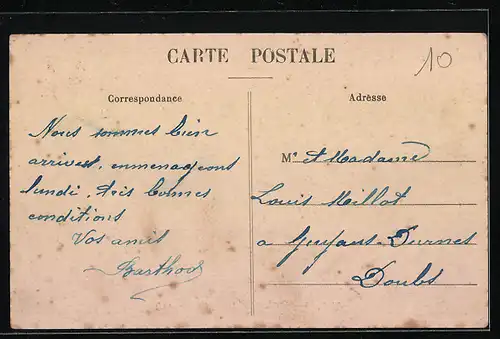 CARTE POSTALE
10
Correspondance
Nous sommes bien
arrives, emmenageons
lundi, très bonnes
conditions
Vos amis
Barthod
Adresse
Mr et Madame
Louis Millot
a Durnes
Doubs